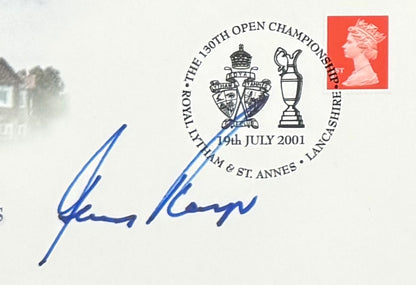 • THE 130TH OPEN CHAMPIONSHIP •
19th JULY 2001
ROYAL LYTHAM & ST. ANNES • LANCASHIRE
1ST
s